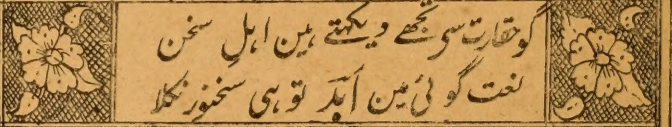 گو حقارت سی تجھے دیکھتے ہین اہلِ سخن
نعت گوئی مین اَبَدؔ تو ہی سخنور نکلا